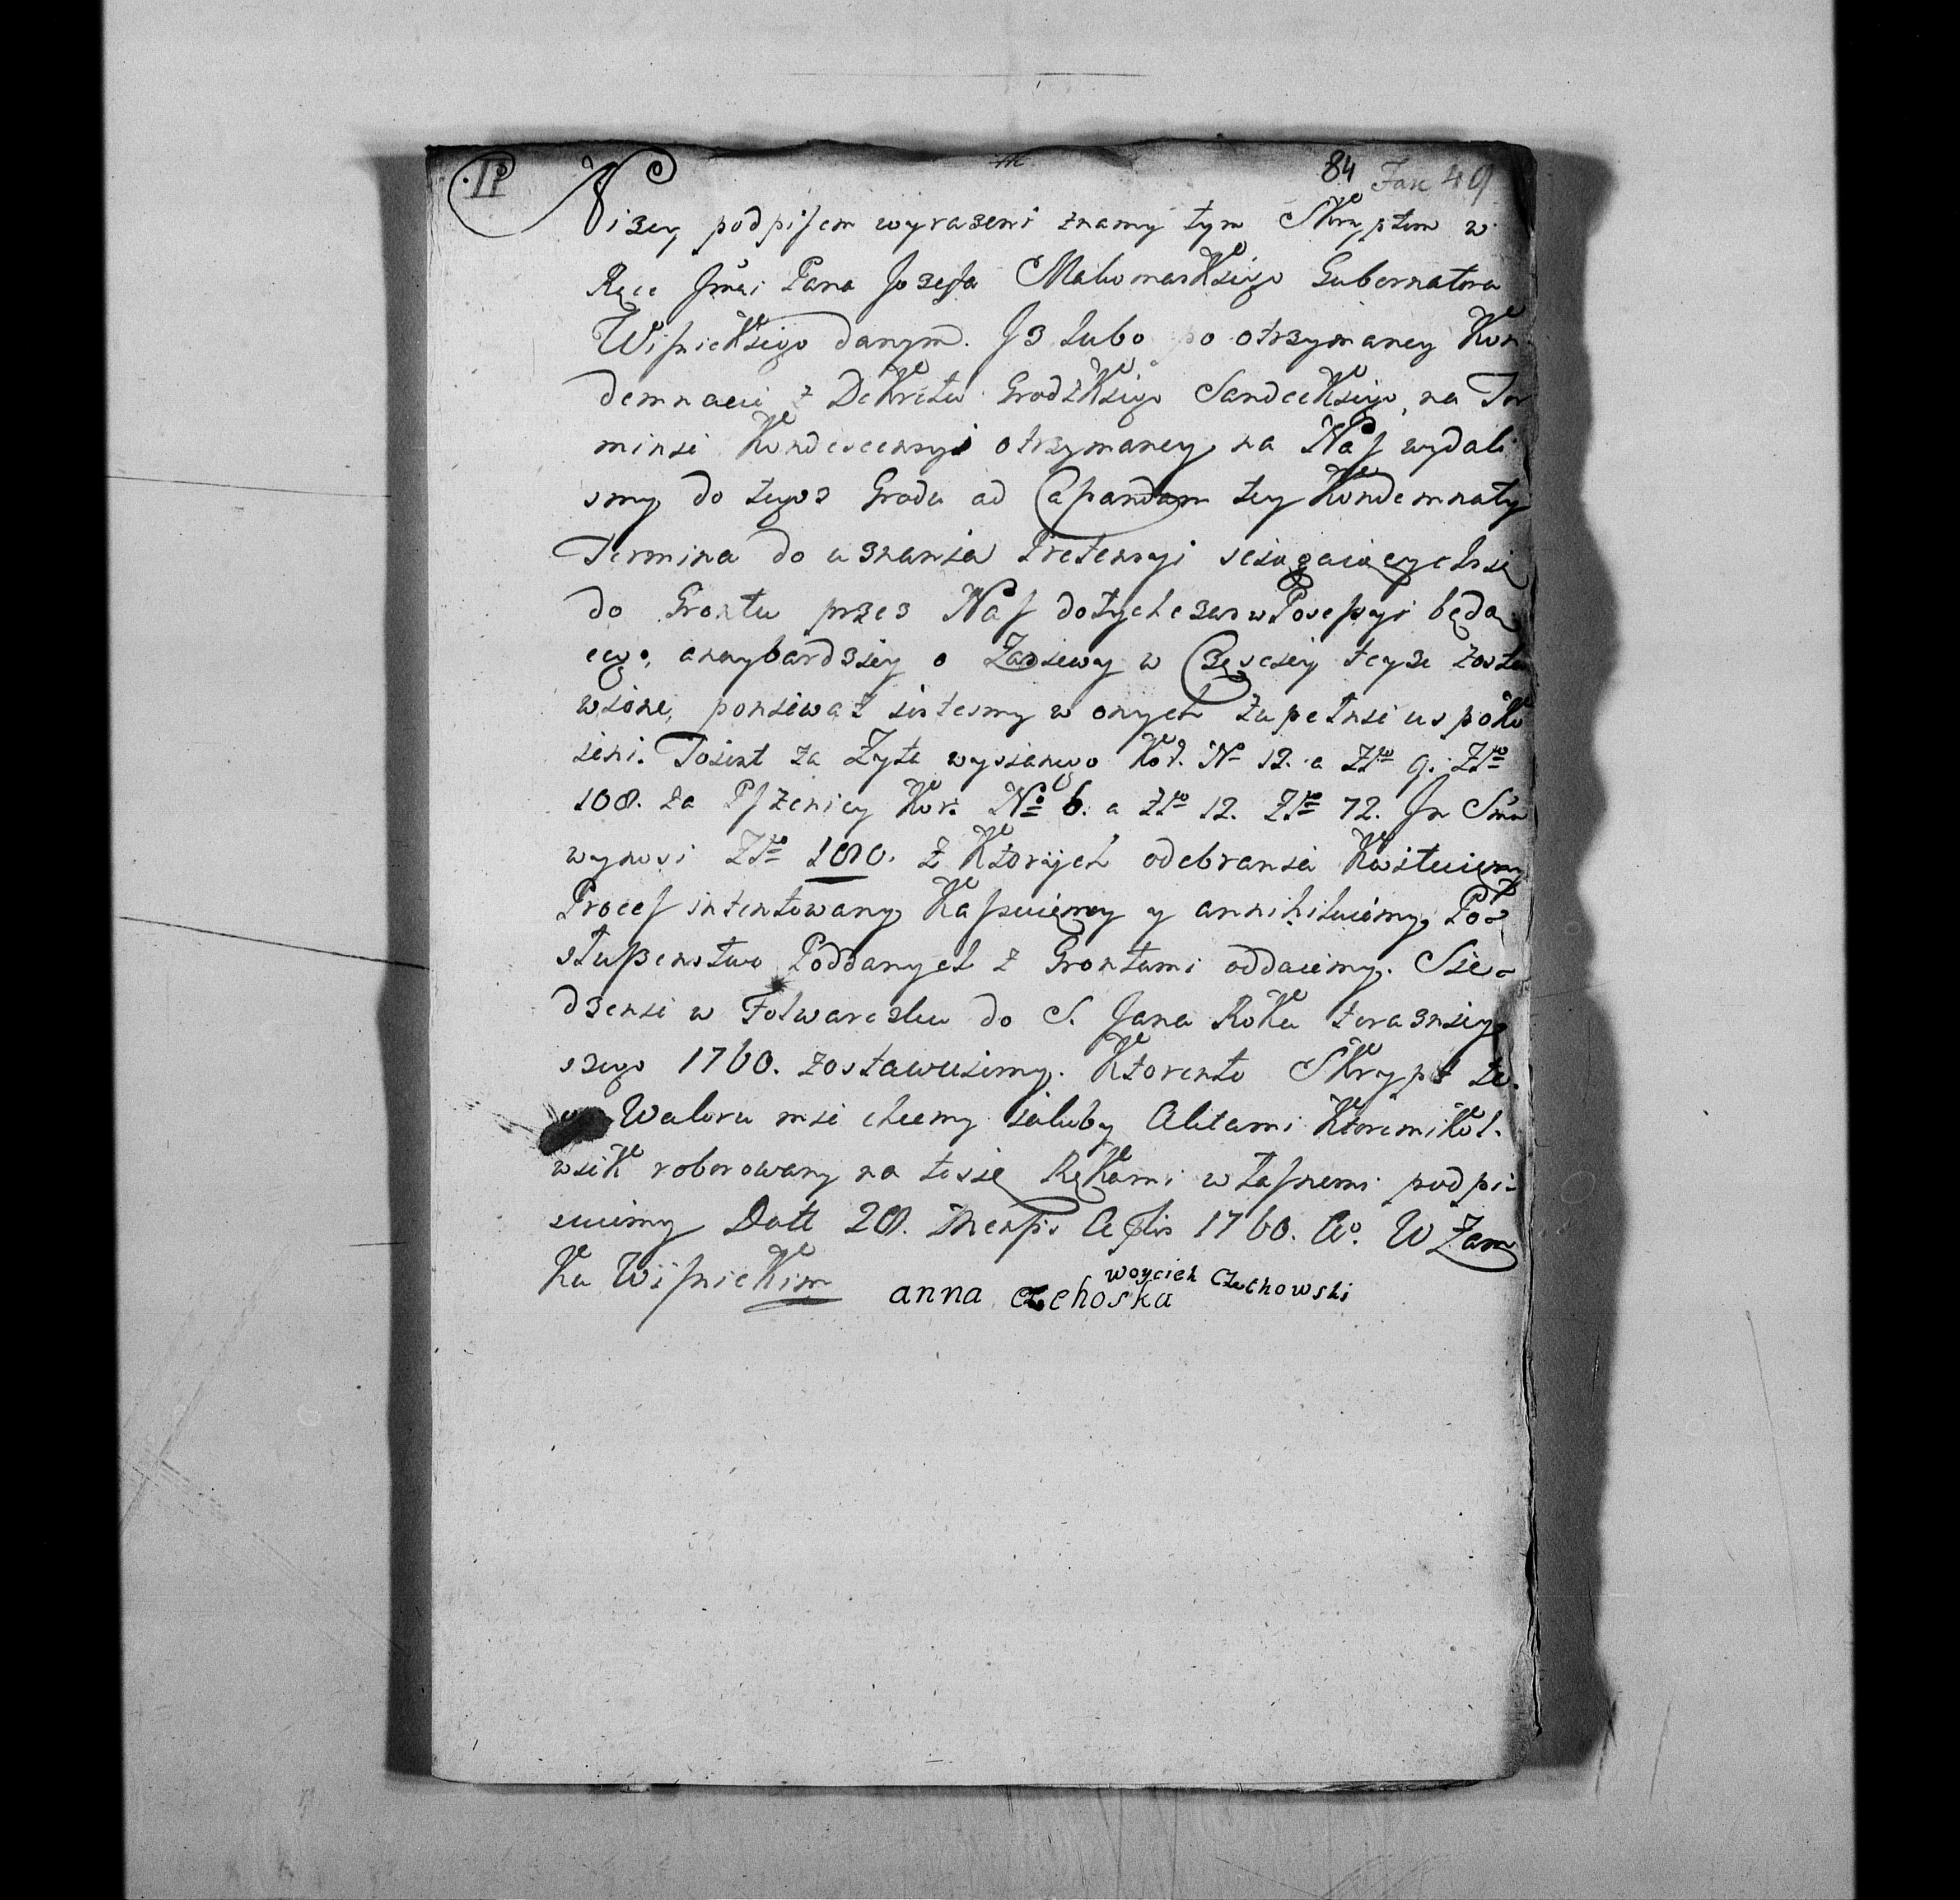 II 84 Fasc 49
Nizey podpisem wyrazeni znamy tym Skryptem w
Ręce Jmci Pana Jozefa Makomaskiego Gubernatora
Wisnickiego danym. Iz lubo po otrzymaney Kon
demnacie z Dekretu Grodzkiego Sandeckiego, na Ter
minie Kondescensyi otrzymaney, na Nas wydali
smy do tegoz Grodu ad Capandam tey Kondemnaty
Termina do uznania Pretensyi sciągaiących się
do Grontu przez Nas dotychczas w Possessyi będą
cego, a naybardziey o Zasiewy w Częsciey teyze zosta
wione, poniewaz iestesmy w onych zupełnie uspoko
ieni. To iest za Zyta wysianego Kor. No 12. a Złło 9. Złło
108. za Pszenicy Kor. No 6. a Złło 12. Złło 72. In Sma
wynosi Złło 180. z Ktorych odebrania Kwituiemy
Process intentowany Kassuiemy y annihiluiemy, Po=
słuszenstwo Poddanych z Grontami oddaiemy. Sie=
dzenie w Folwarczku do S. Jana Roku teraznie
szego 1760. zostawuiemy. Ktorento Skrypt te
go Waloru miec chcemy iakoby Aktami Ktoremikol.
wiek roborowany na to się Rękami własnemi podpi=
suiemy Datt 28. Mensis Aplis 1760. Ao. W Zam
ku Wisnickim
woyciech Czechowski
anna czehoska